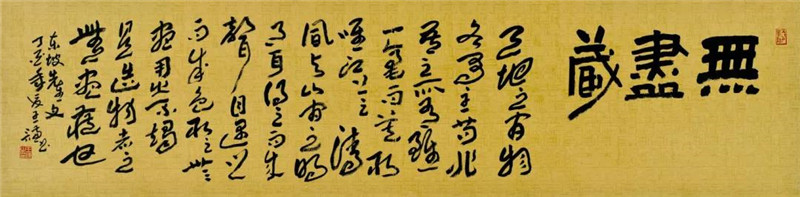 無盡藏
天地之间物
各有主苟非
吾之所有雖
一毫而莫取
唯江上之清
風与山间之明
月耳得之而為
聲目遇之
而成色取之無
禁用之不竭
是造物者之
無盡藏也
东坡先生文
丁亥年夏王